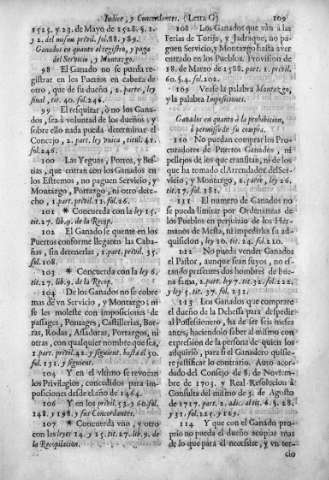 Indice, y Concordantes. (Letra G) 109
1525. y 23. de Mayo de 1528. §. 1.
y 2. del mismo privil. fol. 88. y 89.
Ganados en quanto al registro, y paga
del Servicio, y Montazgo.
98 El Ganado no se pueda re-
gistrar en los Puertos en cabeza de
otro, que de su dueño, 2. parte, ley
final, tit. 40. fol. 246.
99 El resquilar, ò no los Gana-
dos, sea à voluntad de los dueños; y
sobre ello nada pueda determinar el
Concejo, 2. part. ley unica, titul. 42.
fol. 246.
100 Las Yeguas, Potros, y Bes-
tias, que entran con los Ganados en
los Estremos, no paguen Servicio, y
Montazgo, Portazgo, ni otro dere-
cho, 1. part. privil. 21. fol. 26.
101 * Concuerda con la ley 15.
tit. 27. lib. 9. de la Recop.
102 El Ganado se quente en los
Puertos conforme lleguen las Caba-
ñas, sin detenerlas, 1. part. privil. 35.
fol. 108.
103 * Concuerda con la ley 6.
tit. 27. lib. 9. de la Recop.
104 De los Ganados no se cobre
mas de un Servicio, y Montazgo; ni
se les moleste con imposiciones de
passages, Pontages, Castillerias, Bor-
ras, Rodas, Assaduras, Portazgos, ni
otras, con qualquier nombre que sea,
1. part. privil. 42. y siguient. hasta el 50.
fol. 131. y siguient.
105 Y en el ultimo se revocan
los Privilegios, concedidos para im-
posiciones desde el año de 1464.
106 Y en los privil. 53. y 60. fol.
148. y 198. y sus Concordantes.
107 * Concuerda uno, y otro
con las leyes 14. y 15. tit. 27. lib. 9. de
la Recopilacion.
108 Los Ganados que vàn à las
Ferias de Torija, y Jadraque, no pa-
guen Servicio, y Montazgo hasta aver
entrado en los Pueblos. Provision de
18. de Marzo de 1588. part. 1. privil.
60. §. 4. fol. 202.
109 Vease la palabra Montazgo,
y la palabra Imposiciones.
Ganados en quanto à la prohibicion,
ò permisso de su compra.
110 No puedan comprar los Pro-
curadores de Puertos Ganados, ni
pellejos de los que transitan, ni de los
que ha tomado el Arrendador del Ser-
vicio, y Montazgo, 2. parte, ley 26.
tit. 27. fol. 181.
111 El numero de Ganados no
se pueda limitar por Ordenanzas de
los Pueblos en perjuicio de los Her-
manos de Mesta, ni impedirles su ad-
quisicion, ley 20. tit. 24. fol. 210.
112 No pueda vender Ganados
el Pastor, aunque sean suyos, no es-
tando presentes dos hombres de bue-
na fama, 2. part. ley 7. tit. 32. fol. 221.
y ley 5. tit. 37. fol. 231.
113 Los Ganados que comprare
el dueño de la Dehessa para despedir
al Possessionero, ha de ser sin medi-
anes; haciendolo saber al mismo con
expression de la persona de quien los
adquiriò, para si el Ganadero quisie-
re justificar lo contrario. Auto acor-
dado del Consejo de 8. de Noviem-
bre de 1703. y Real Resolucion à
Consulta del mismo de 5. de Agosto
de 1717. part. 2. adic. al tit. 6. §. 28.
y 31. fol. 225. y 269.
114 Y que con el Ganado pro-
prio no pueda el dueño ocupar mas
de lo que para èl necessite, y un ter-
cio